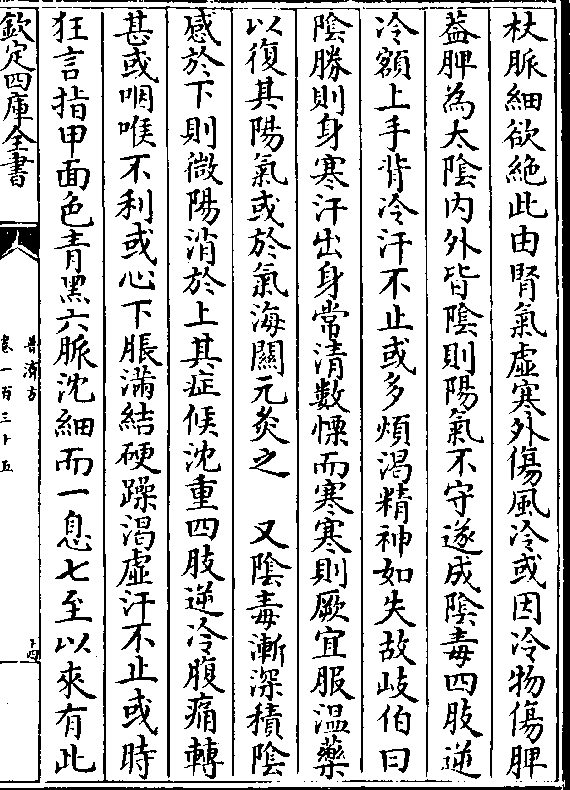 杖脈細欲絶此由腎氣虚寒外傷風冷或因冷物傷脾
葢脾為太陰内外皆陰則陽氣不守遂成陰毒四肢逆
冷額上手背冷汗不止或多煩渴精神如失故岐伯曰
陰勝則身寒汗出身常清數慄而寒寒則厥宜服温藥
以復其陽氣或於氣海關元灸之　又陰毒漸深積陰
感於下則微陽消於上其症候沈重四肢逆冷腹痛轉
甚或咽喉不利或心下脹滿結硬躁渴虚汗不止或時
狂言指甲面色青黑六脈沈細而一息七至以來有此
欽定四庫全書
普濟方
卷一百三十五
十四